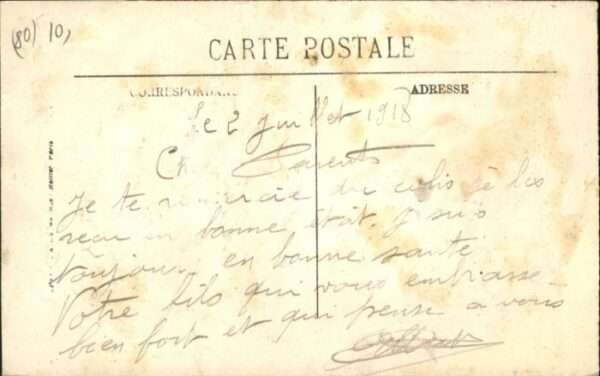 (80) 10,
CARTE POSTALE
CORRESPONDANCE
ADRESSE
Le 2 juillet 1918
Parents
Je te remercie du colis je les
reçu en bonne état. je suis
toujours en bonne santé
Votre fils qui vous embrasse
bien fort et qui pense a vous